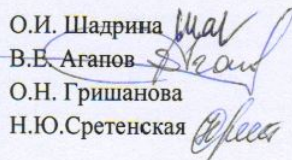 О.И. Шадрина
В.Е. Агапов
О.Н. Гришанова
Н.Ю.Сретенская